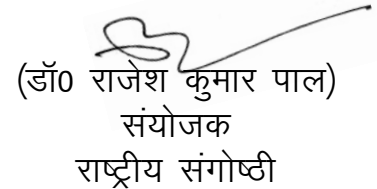 (डॉ0 राजेश कुमार पाल)
संयोजक
राष्ट्रीय संगोष्ठी